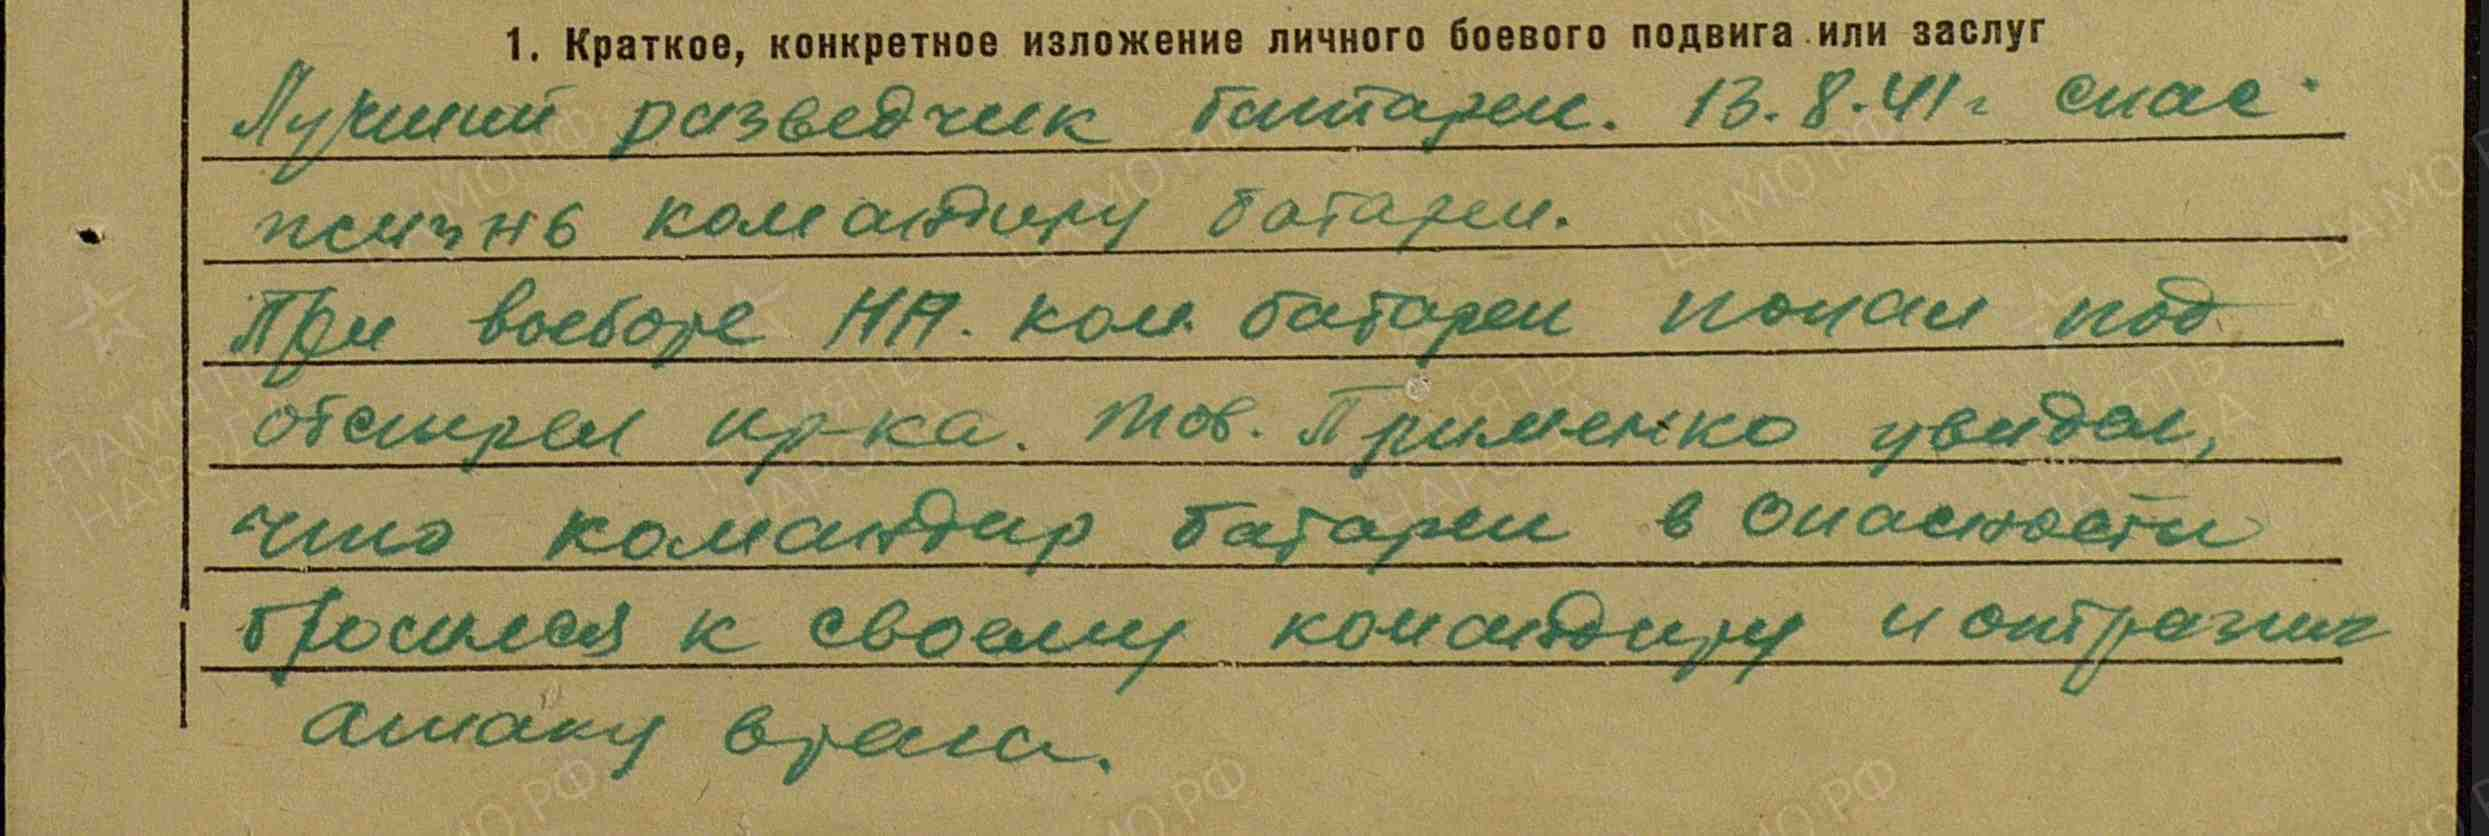 1. Краткое, конкретное изложение личного боевого подвига или заслуг
Лучший разведчик батареи. 13.8.41г спас
жизнь командиру батареи.
При выборе НП. ком. батареи попал под
обстрел пр-ка. Тов. Грименко увидел,
что командир батареи в опасности
бросился к своему командиру и отразил
атаку врага.
ЦА МО РФ
ПАМЯТЬ НАРОДА